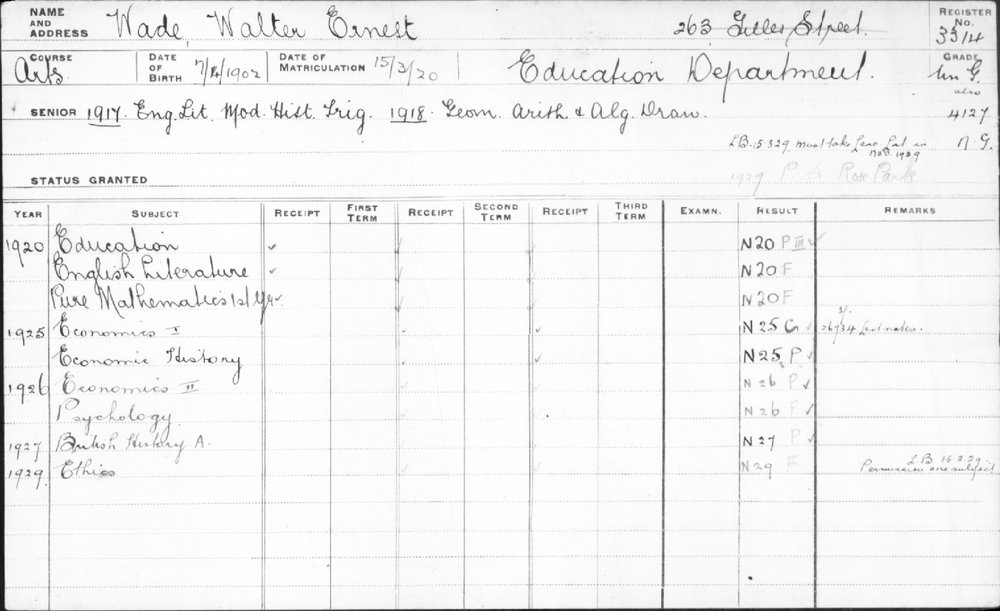 NAME AND ADDRESS Wade, Walter Ernest 263 Street. REGISTER No. 3314
COURSE Arts. DATE OF BIRTH 7/4/1902 DATE OF MATRICULATION 15/3/20 Education Department. GRADE Un G.
also
SENIOR 1917. Eng. Lit. Mod. Hist. Trig. 1918. Geom. Arith & Alg. Draw. 4127
L.B. 15.3.29. must take Lat in Nov. 1929 N.G.
STATUS GRANTED 1927 Rose Park
YEAR SUBJECT RECEIPT FIRST TERM RECEIPT SECOND TERM RECEIPT THIRD TERM EXAMN. RESULT REMARKS
1920 Education N20 P III
English Literature N20 F
Pure Mathematics 1st Yr N20 F
1925 Economics I N25 C 26/34 Lect notes.
Economic History N25 P
1926 Economics II N26 P
Psychology N26 P
1927 British History A. N27 P
1929 Ethics N29 F L.B 15.3.29.
Permission one subject.